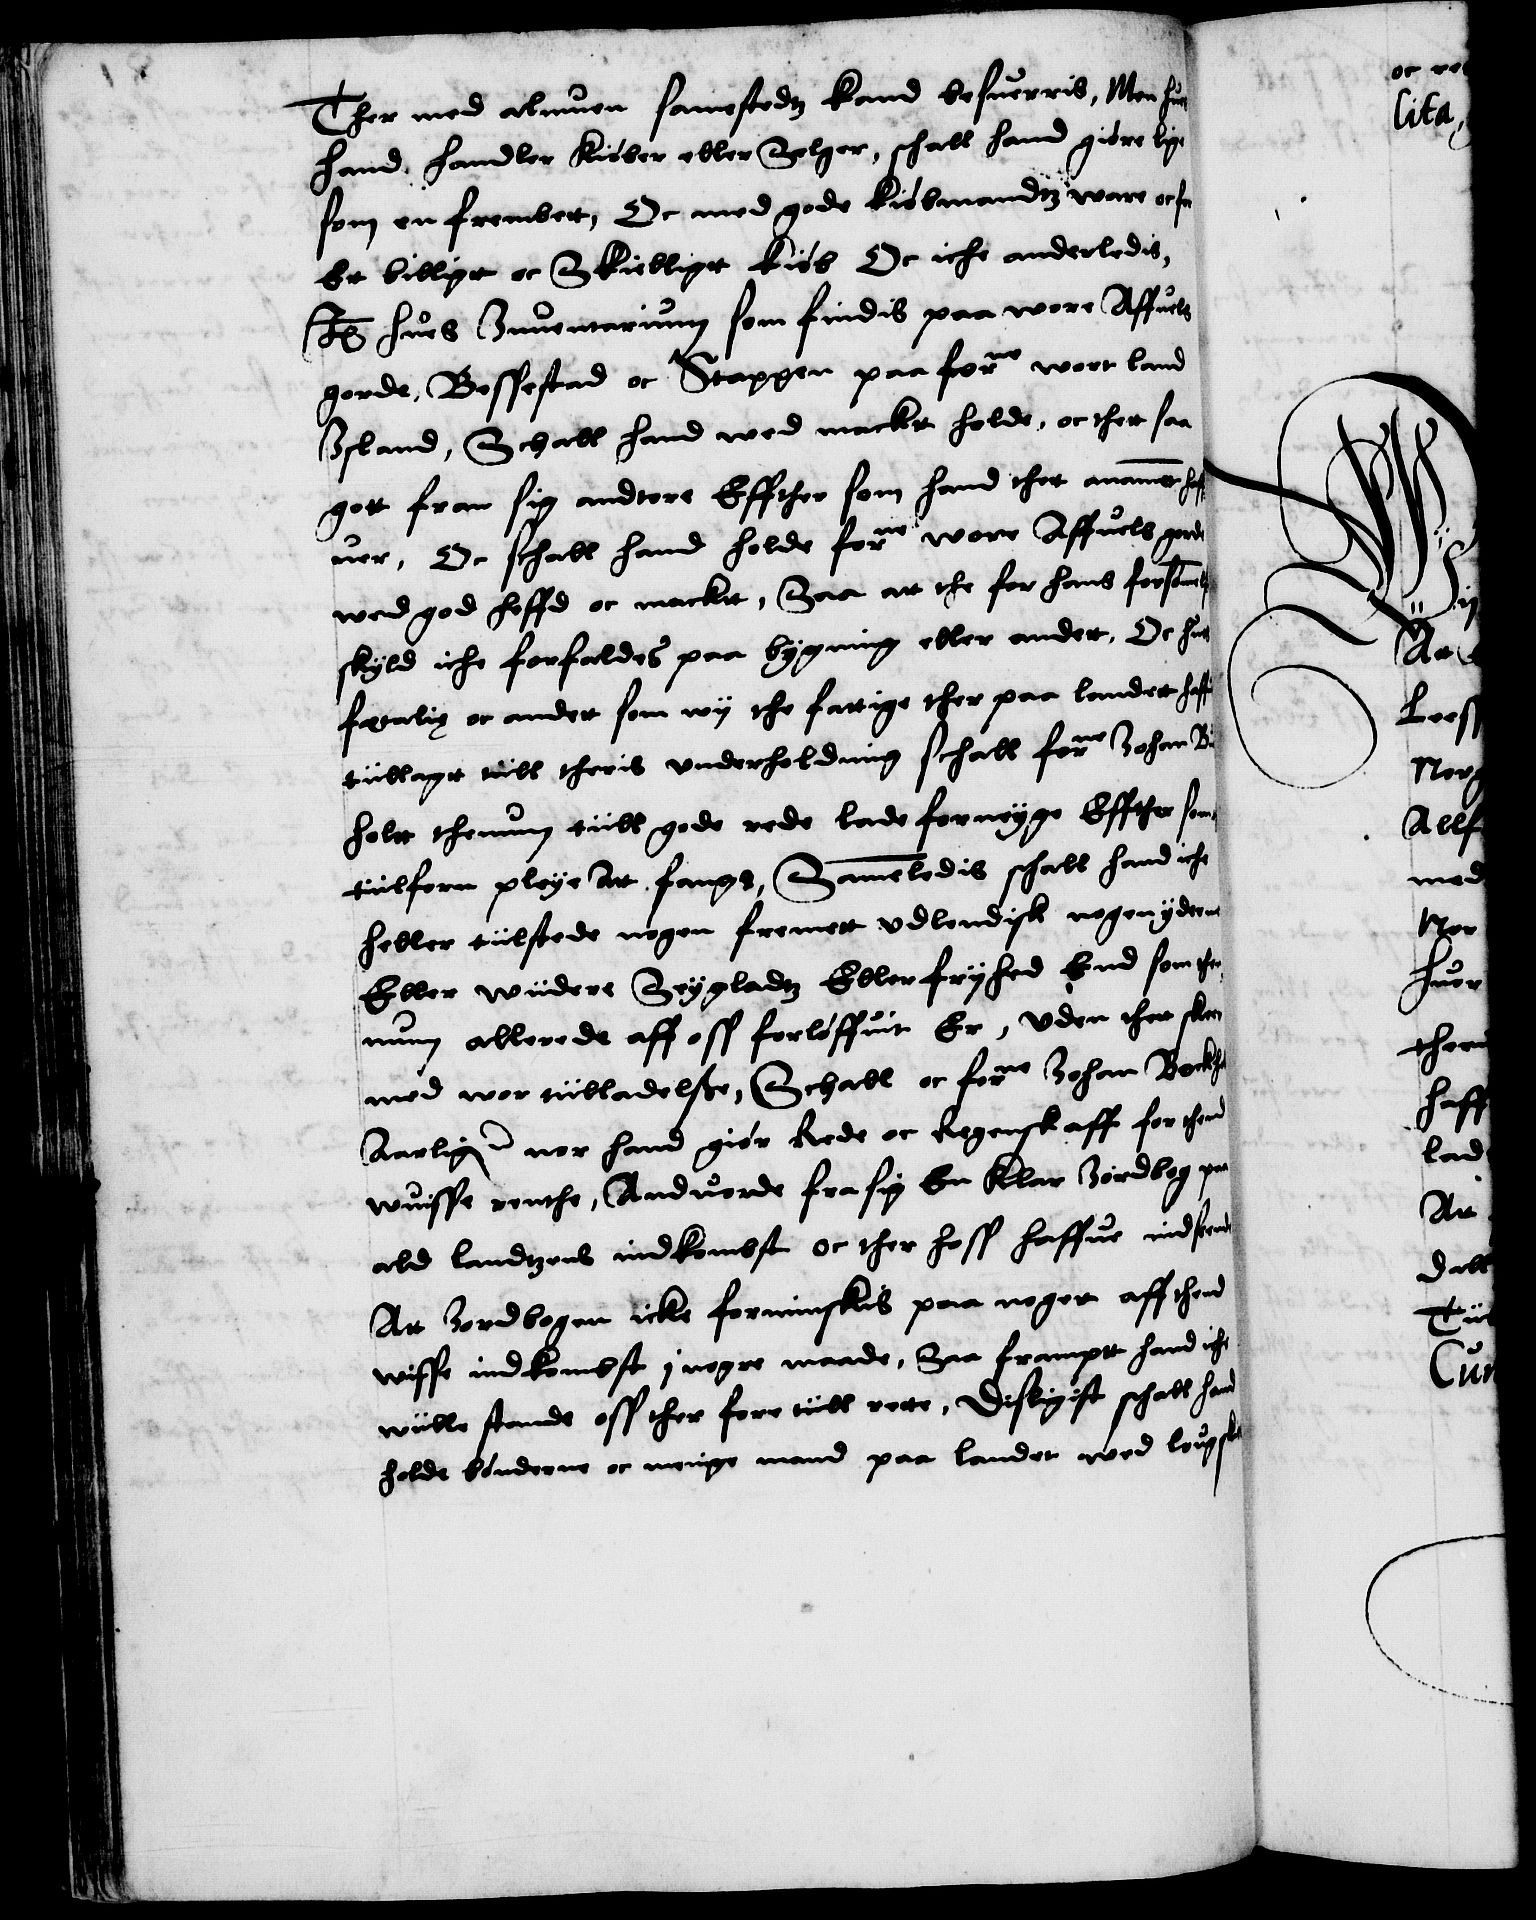 Ther med almuen samestedtz kand besuerris, Men hues
hand handler kiøber eller Selger, schall hand giøre lige
som en frembet, Oc med gode kiøbmandtz ware oc for
Et billigt oc Skielligt kiøb Oc iche anderledis,
Ithz hues Inuentarium som findis paa wore Affuels
gorde, Bessestad oc Stappen paa forne wort land
Island, Schall hand wed mackt holde, oc thet saa
gott fran sig andtore Effther som hand thet anamet haff
uer, Oc schall hand holde forne wore Affuels gorde
wed god heffd oc mackt, Saa at the for hans forsømels
skyld iche forfaldes paa bygning eller andet. Oc hues
fetalig oc andet som wij the fattige ther paa landet haffue
tillagt till theris underholdning schall forne Johan Bu
holt thennum till gode rede lade fornøyge Effther som
tilforn pleye At fange, Sameledis schall hand iche
heller tilstede nogen fremett udlendisk nogen ydtere
Eller widere Seygladtz Eller fryhed End som then
num allerede aff oss forløffuit Er, Uden thet skeer
med wor tilladelsse, Schall oc forne Johan Bockholt
Aarligen nor hand giør Rede oc Regenskaff for thend
wuisse renthe, Anduorde fra sig En klar Jordbog paa
ald landtzens indkombst oc ther hoss haffue indseende
At Jordbogen icke forminskis paa noget aff thend
wisse indkombst j nogre maade, Saa frampt hand iche
wille stande oss ther fore till rette, Disligist schall hand
holde bønderne oc menige mand paa landet wed lougske
oc re
lita,
Wij
At
Leess
Norg
Allf
med
Nor
huor
ther
haff
lad
At
dall
Till
Cun